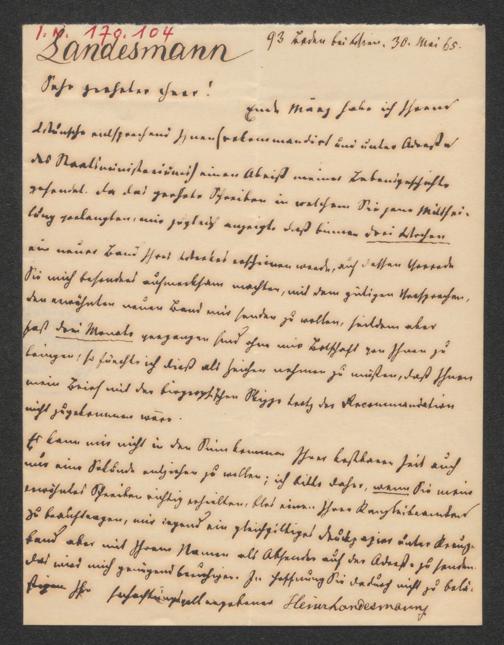 I.N. 170.104
Landesmann
93 Baden bei Wien. 30. Mai 65.
Sehr geehrter Herr!
Ende März habe ich Ihrem
Wunsche entsprechend Ihnen (rekommandirt und unter Adresse
des Staatsministeriums) einen Abriß meiner Lebensgeschichte
gesendet. Da das geehrte Schreiben in welchem Sie jene Mitthei-
lung verlangten, mir zugleich anzeigte daß binnen drei Wochen
ein neuer Band Ihres Werkes erscheinen werde, auf dessen Vorrede
Sie mich besonders aufmerksam machten, mit dem gütigen Versprechen,
den erwähnten neuen Band mir senden zu wollen, seitdem aber
fast drei Monate vergangen sind ohne mir Botschaft von Ihnen zu
bringen; so fürchte ich dieß als Zeichen nehmen zu müßen, daß Ihnen
mein Brief mit der biografischen Skizze trotz der Recommandation
nicht zugekommen wäre.
Es kann mir nicht in den Sinn kommen Ihrer kostbaren Zeit auch
nur eine Sekunde entziehen zu wollen; ich bitte daher, wenn Sie mein
erwähntes Schreiben richtig erhielten, blos einen Ihrer Kanzleibeamten
zu beauftragen, mir irgend ein gleichgültiges Druckpapier unter Kreuz-
band aber mit Ihrem Namen als Absender auf der Adresse zu senden.
Das wird mich genügend beruhigen. In Hoffnung Sie dadurch nicht zu belä-
stigen Ihr hochachtungsvoll ergebener Heinr Landesmann